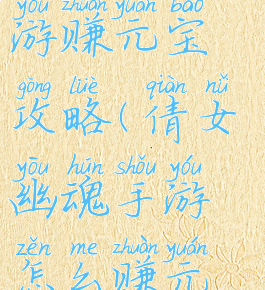 yóu zhuàn yuán bǎo
游赚元宝
gōng lüè qiàn nǚ
攻略(倩女
yōu hún shǒu yóu
幽魂手游
zěn me zhuàn yuán
怎么赚元